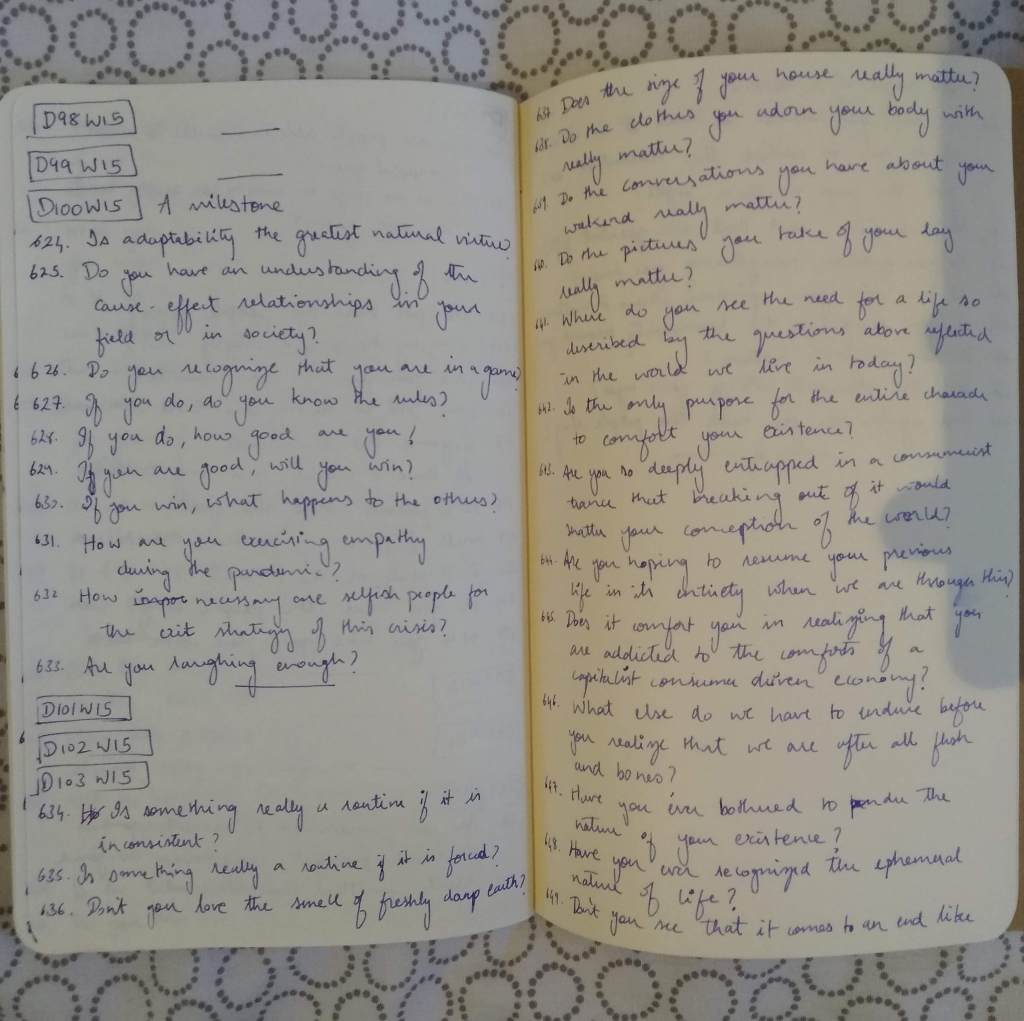 D98 W15
D99 W15
D100 W15 A milestone
624. Is adaptability the greatest natural virtue?
625. Do you have an understanding of the
cause-effect relationships in your
field or in society?
626. Do you recognize that you are in a game?
627. If you do, do you know the rules?
628. If you do, how good are you?
629. If you are good, will you win?
630. If you win, what happens to the others?
631. How are you exercising empathy
during the pandemic?
632 How necessary are selfish people for
the exit strategy of this crisis?
633. Are you laughing enough?
D101 W15
D102 W15
D103 W15
634. Is something really a routine if it is
inconsistent?
635. Is something really a routine if it is forced?
636. Don't you love the smell of freshly damp earth?
637. Does the size of your house really matter?
638. Do the clothes you adorn your body with
really matter?
639. Do the conversations you have about your
weekend really matter?
640. Do the pictures you take of your day
really matter?
641. Where do you see the need for a life so
described by the questions above reflected
in the world we live in today?
642. Is the only purpose for the entire charade
to comfort your existence?
643. Are you so deeply entrapped in a consumerist
trance that breaking out of it would
shatter your conception of the world?
644. Are you hoping to resume your previous
life in its entirety when we are through this?
645. Does it comfort you in realizing that you
are addicted to the comforts of a
capitalist consumer driven economy?
646. What else do we have to endure before
you realize that we are after all flesh
and bones?
647. Have you ever bothered to ponder the
nature of your existence?
648. Have you ever recognized the ephemeral
nature of life?
649. Don't you see that it comes to an end like